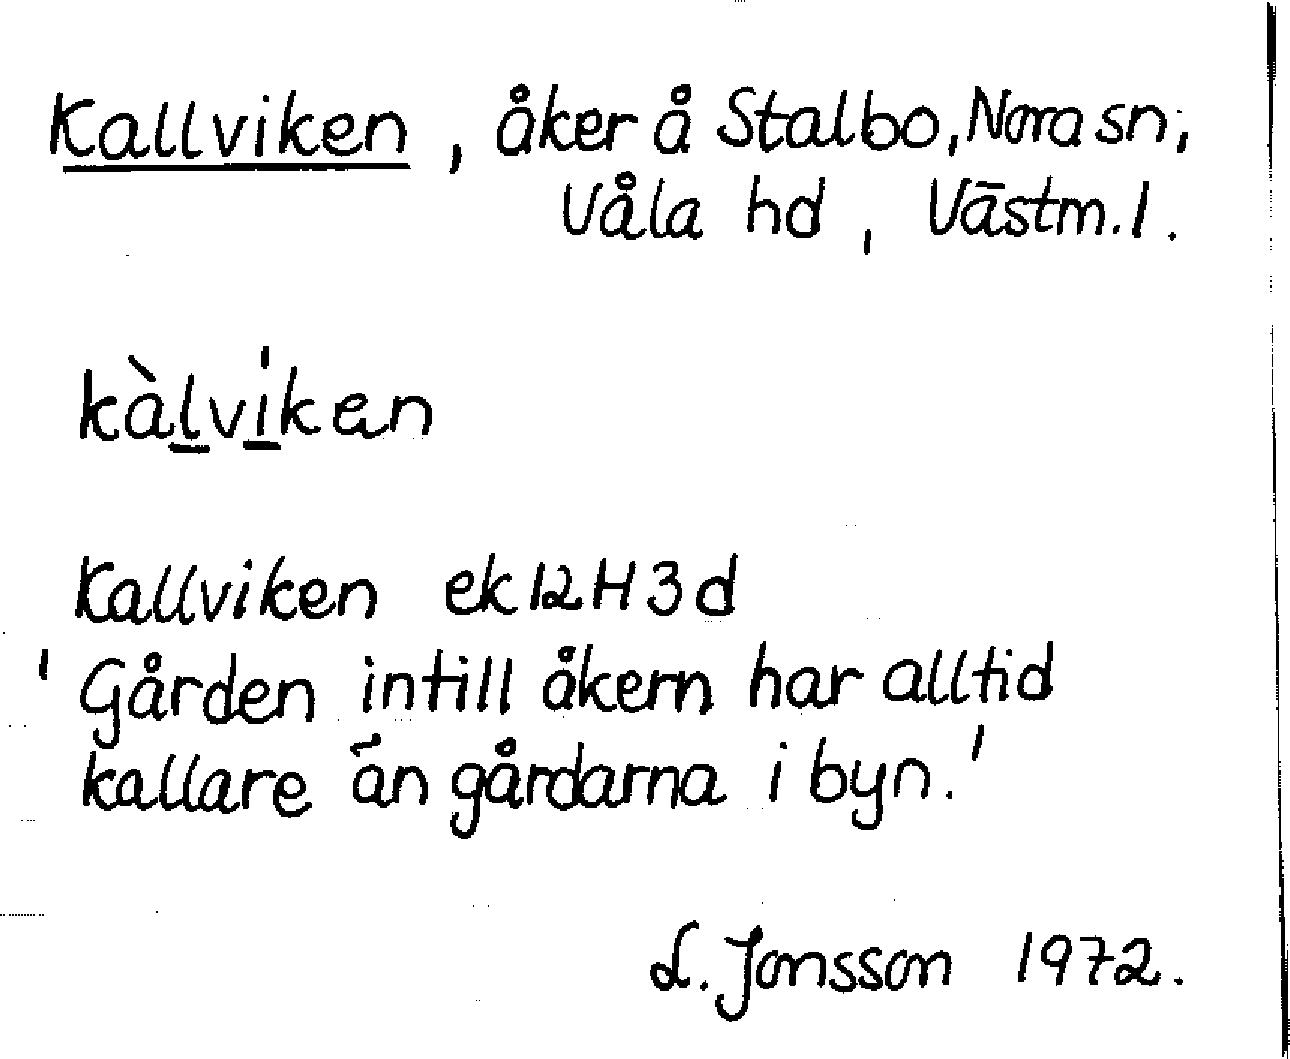 Kallviken, åker å Stalbo, Nora sn,
Våla hd, Västm.l.
kàlvi̍kan
Kallviken ek 12H3d
'Gården intill åkern har alltid
kallare än gårdarna i byn.'
L. Jonsson 1972.